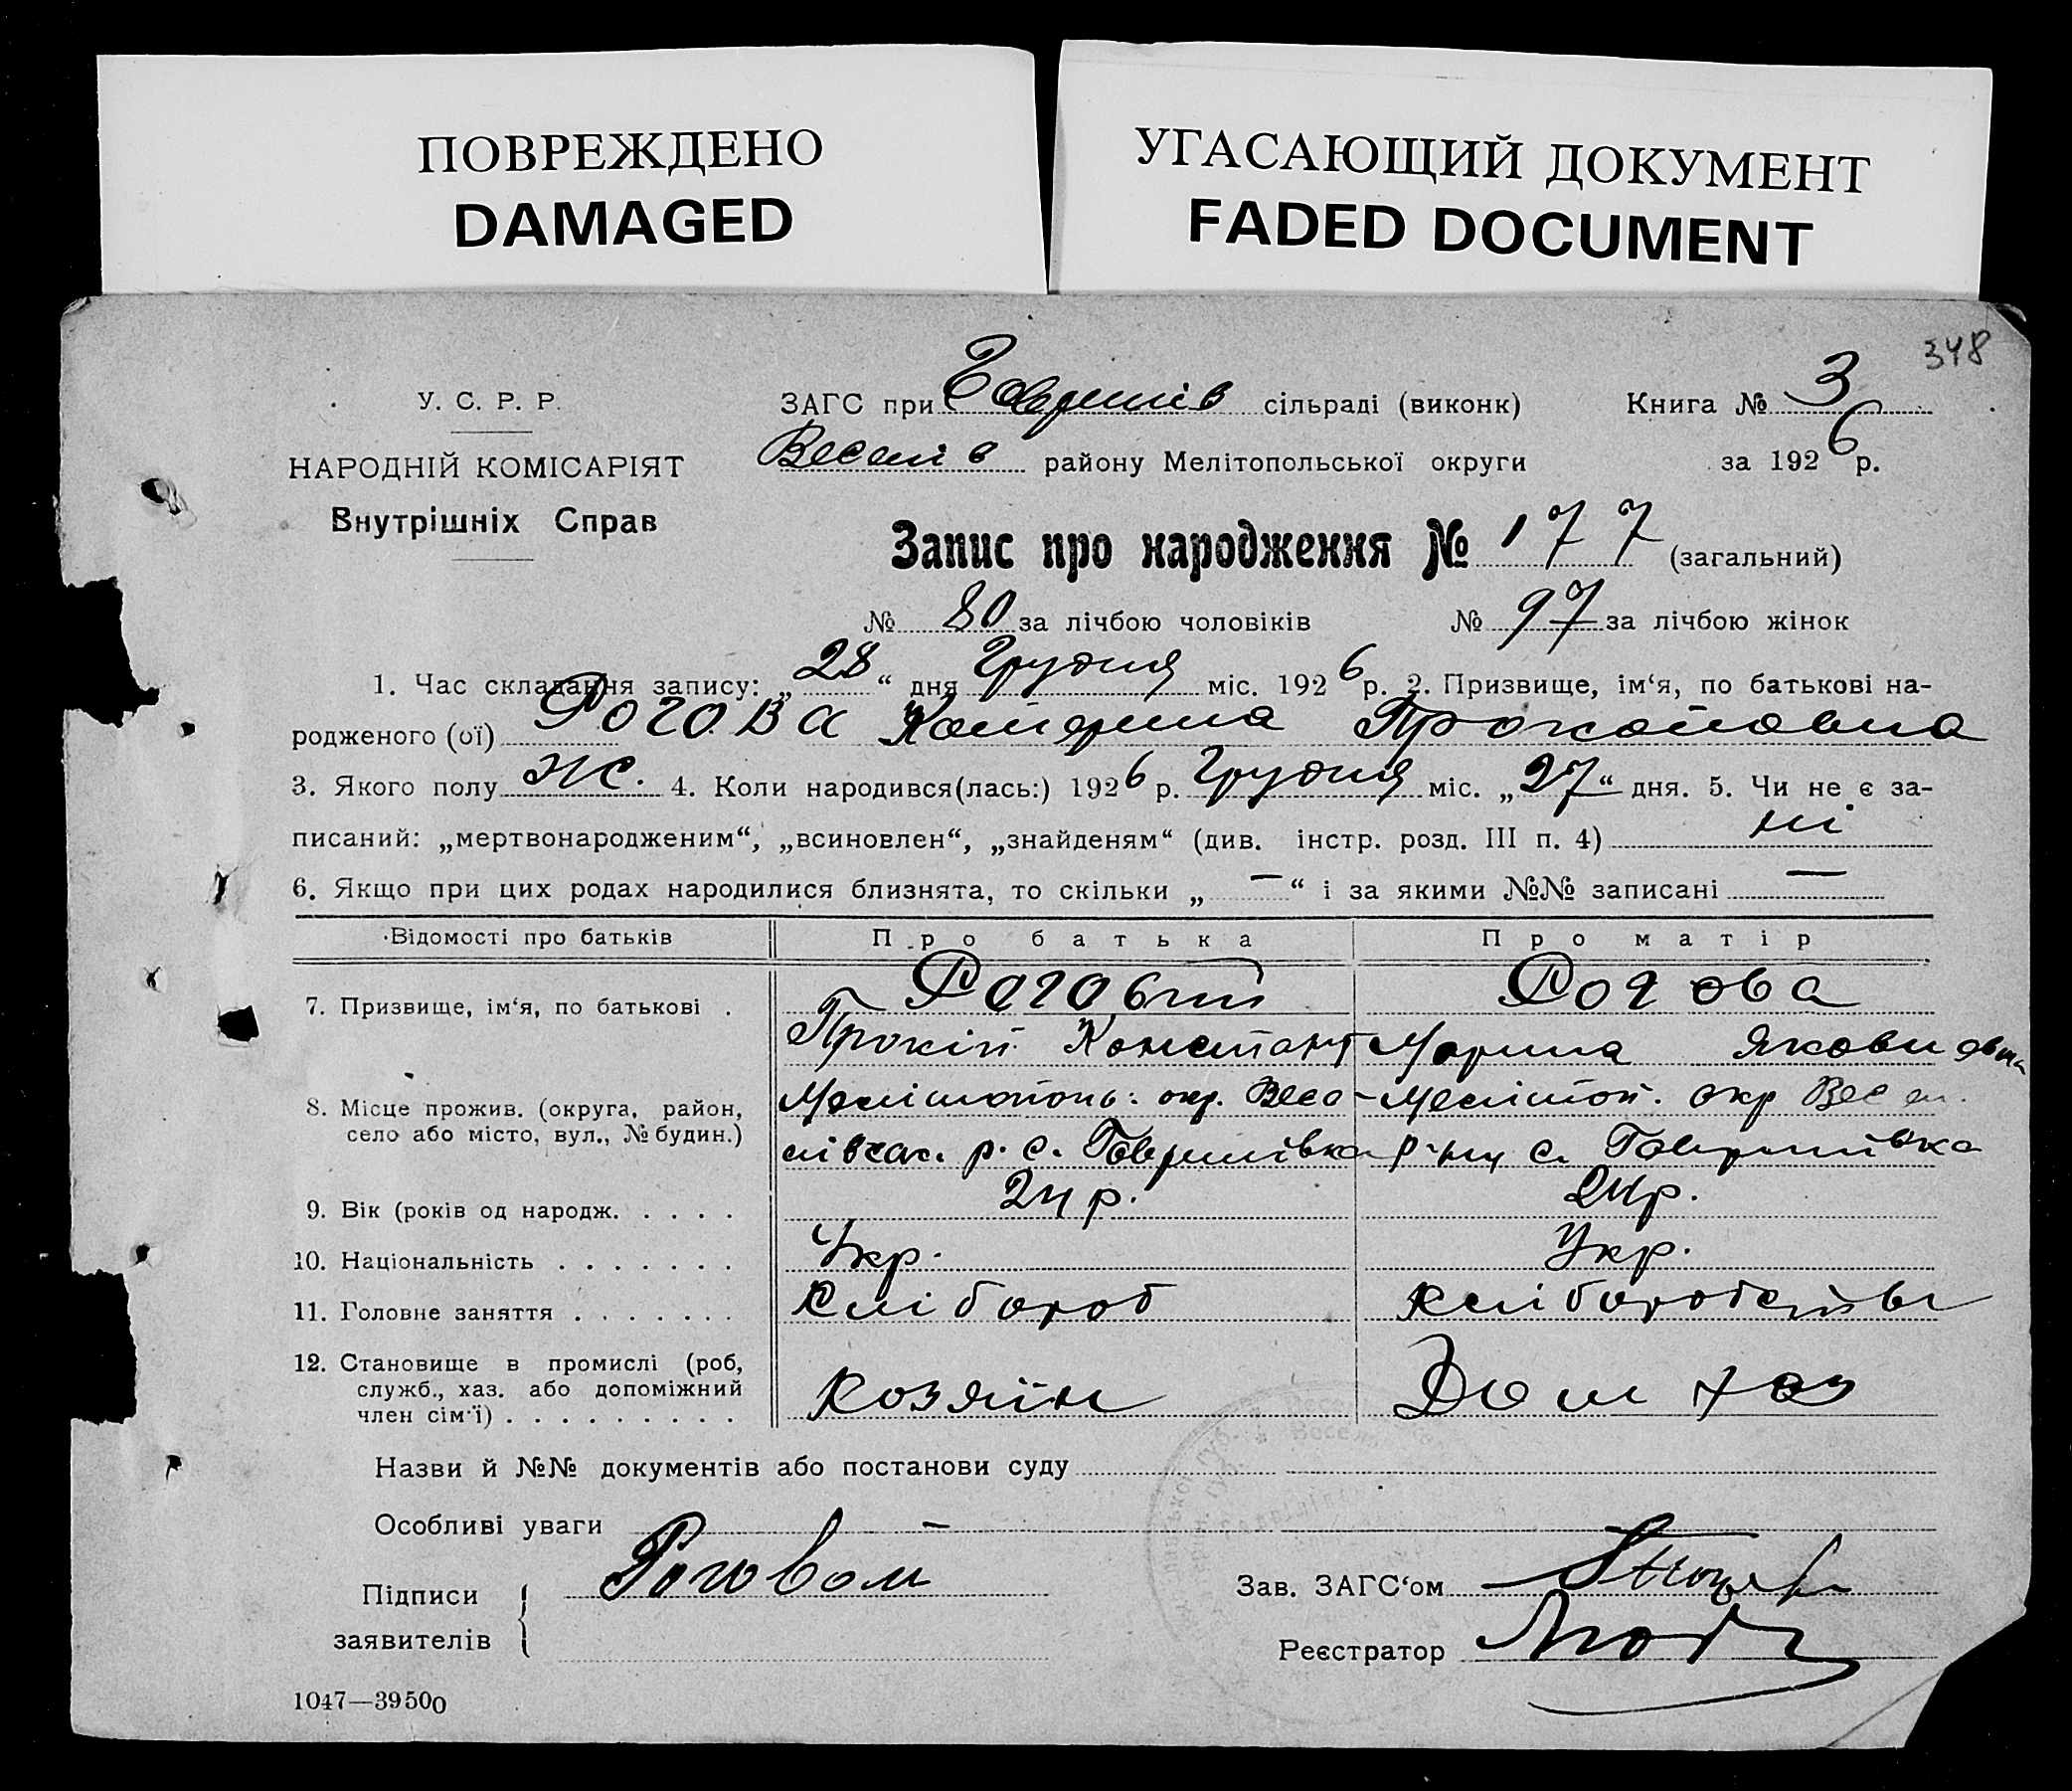 ПОВРЕЖДЕНО
DAMAGED
УГАСАЮЩИЙ ДОКУМЕНТ
FADED DOCUMENT
348
У. С. Р. Р.
НАРОДНІЙ КОМІСАРІЯТ
Внутрішніх Справ
ЗАГС при Гаврилів сільраді (виконк) Книга № 3
Веселів району Мелітопольської округи за 1926 р.
Запис про народження № 177 (загальний)
№ 80 за лічбою чоловіків № 97 за лічбою жінок
1. Час складання запису: „28“ дня Грудня міс. 1926 р. 2. Призвище, ім‘я, по батькові на-
родженого (ої) Рогова Катерина Прокоповна
3. Якого полу Ж. 4. Коли народився(лась:) 1926 р. Грудня міс. „27“ дня. 5. Чи не є за-
писаний: „мертвонародженим“, „всиновлен“, „знайденям“ (див. інстр. розд. III п. 4) ні
6. Якщо при цих родах народилися близнята, то скільки „ — “ і за якими №№ записані —
Відомості про батьків Про батька Про матір
7. Призвище, ім‘я, по батькові . Роговий Рогова
Прокіп Констант Марина Якови овна
8. Місце прожив. (округа, район, Мелітополь. окр. Весе- Мелітоп. окр Весел.
село або місто, вул., № будин.) лівськ. р. с. Гаврилівка р-ну с. Гаврилівка
9. Вік (років од народж. . . . . 24 р. 24 р.
10. Національність . . . . . . . Укр. Укр.
11. Головне заняття . . . . . . . Хлібороб Хліборобств
12. Становище в промислі (роб,
служб., хаз. або допоміжний
член сім‘ї) . . . . . . . . . Хозяїн Дом хоз
Назви й №№ документів або постанови суду
Особливі уваги —
Підписи
заявителів Роговой
Зав. ЗАГС‘ом
Реєстратор
1047—39500